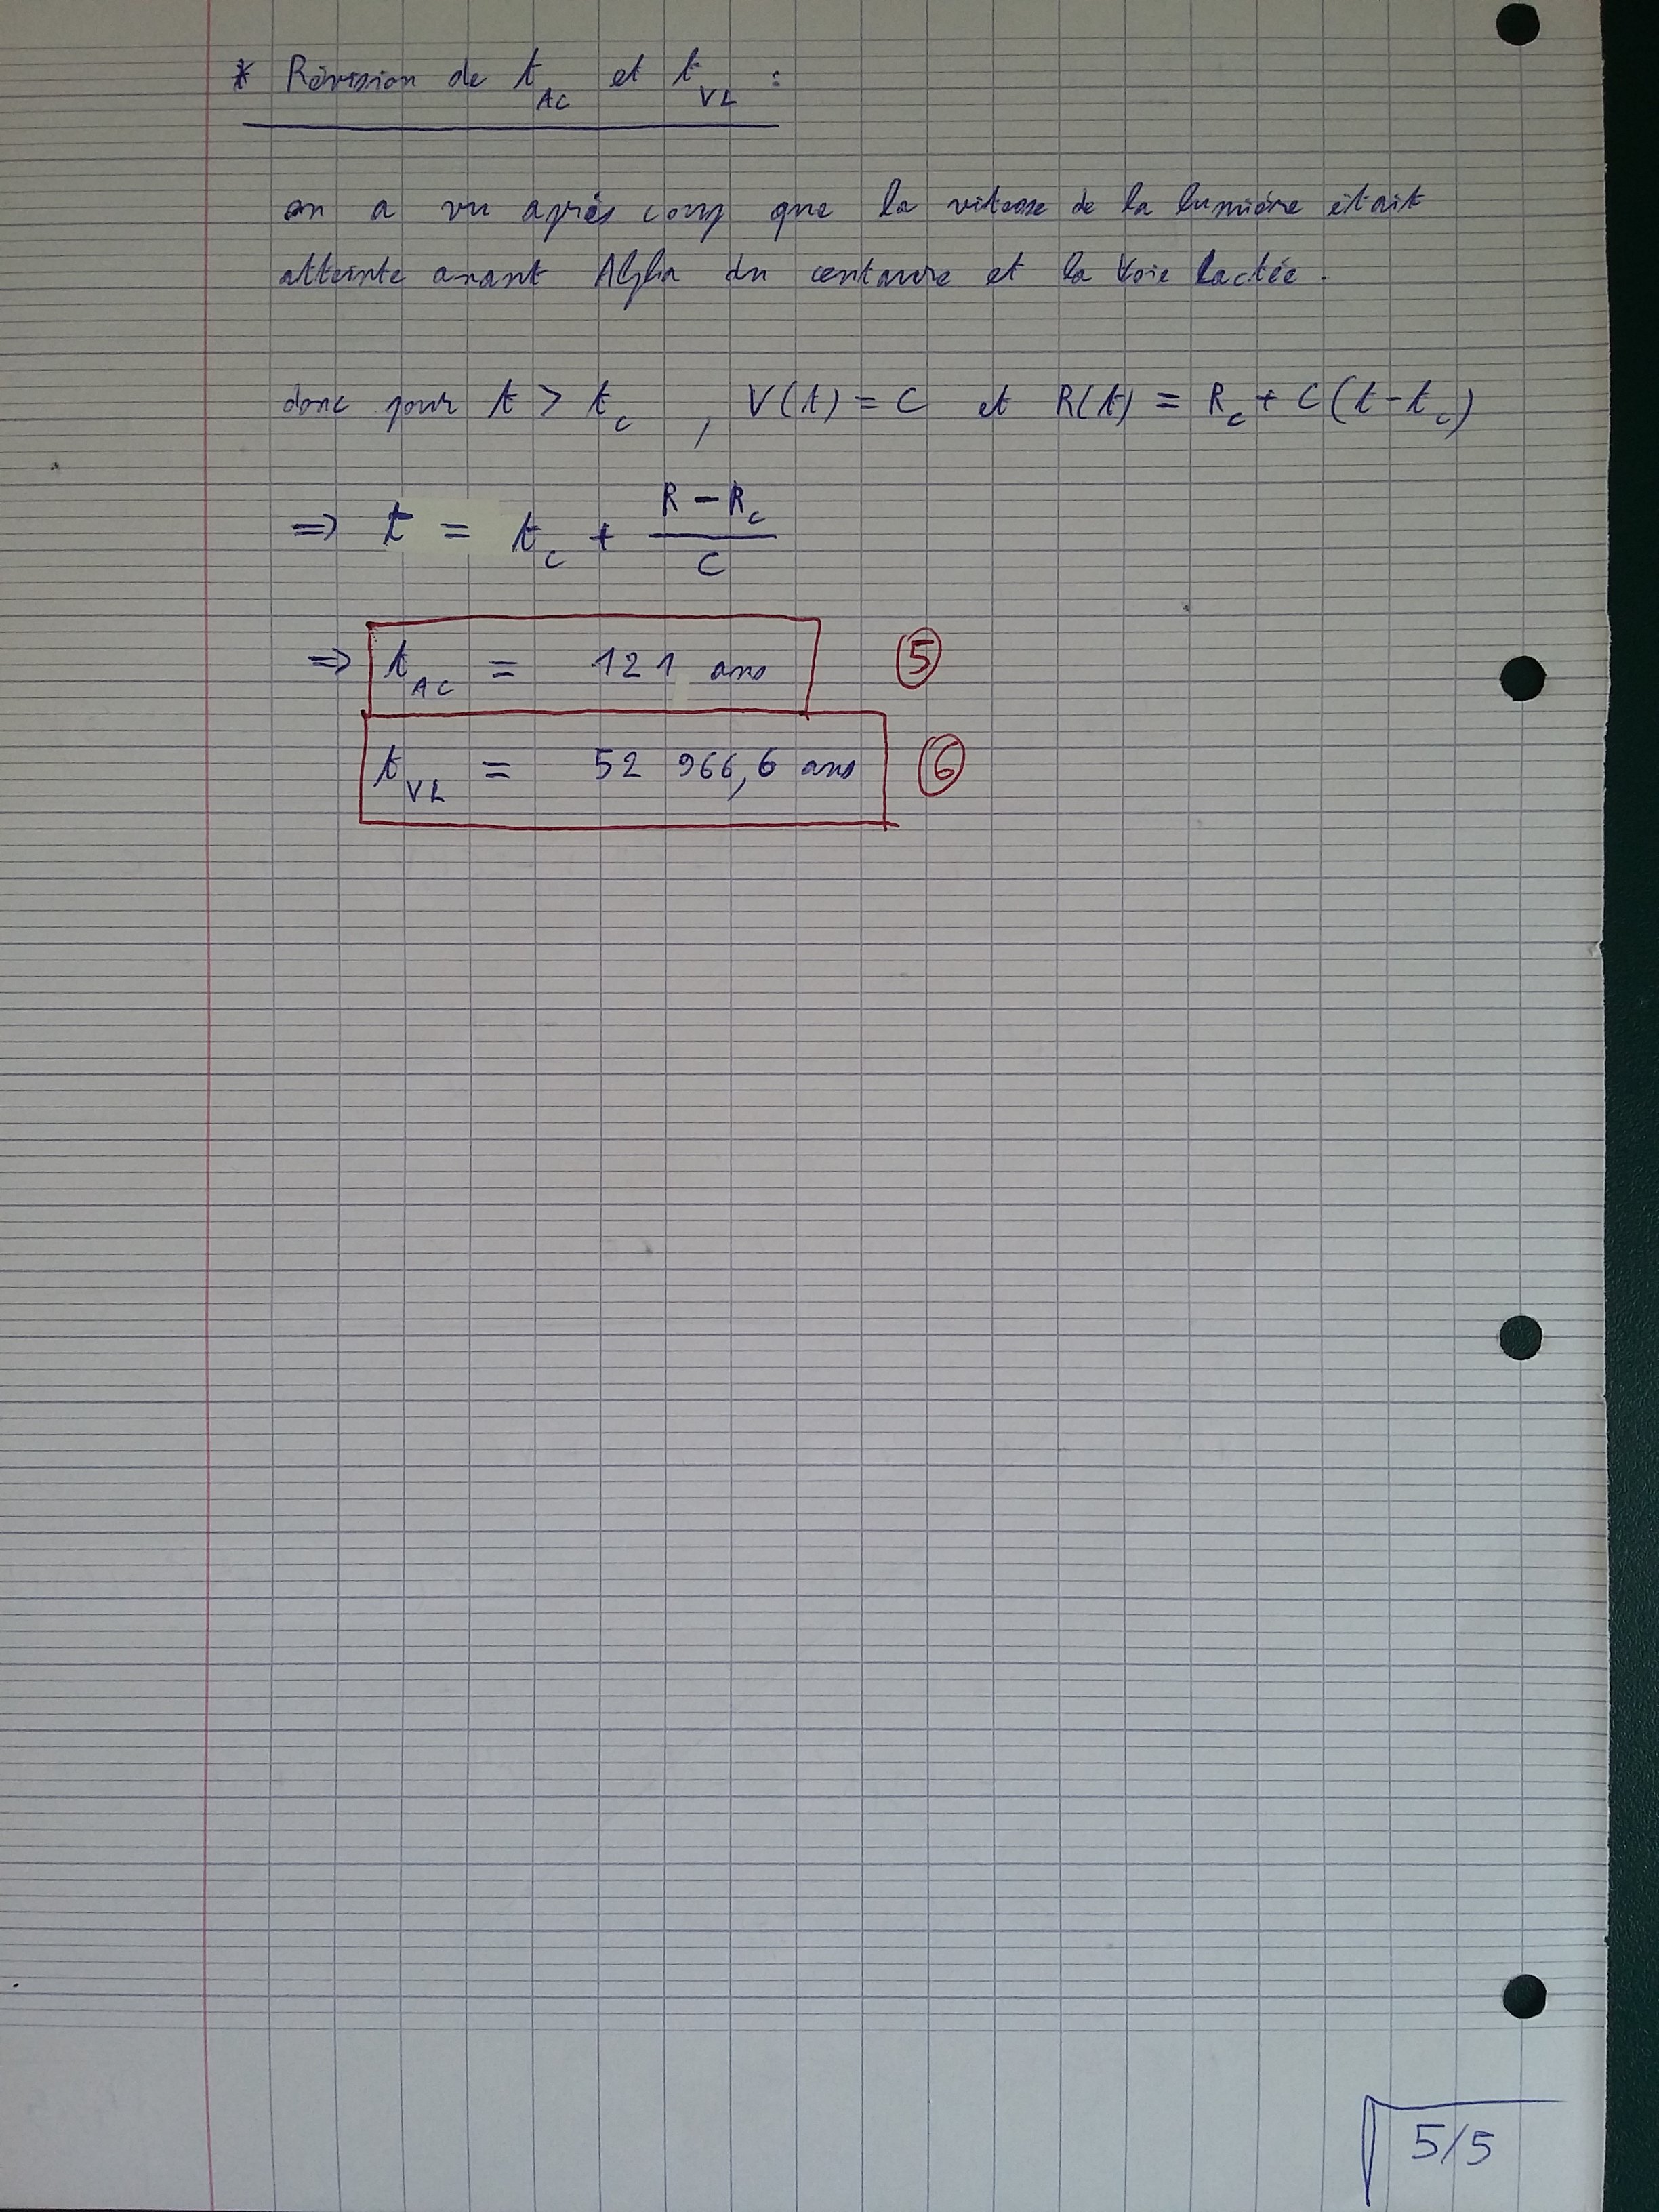 * Révision de t_AC et t_VL :
on a vu après coup que la vitesse de la lumière était
atteinte avant Alpha du centaure et la Voie Lactée.
donc pour t > t_c , V(t) = C et R(t) = R_c + C(t - t_c)
⇒ t = t_c + (R - R_c) / C
⇒ t_AC = 121 ans ⑤
t_VL = 52 966,6 ans ⑥
5/5